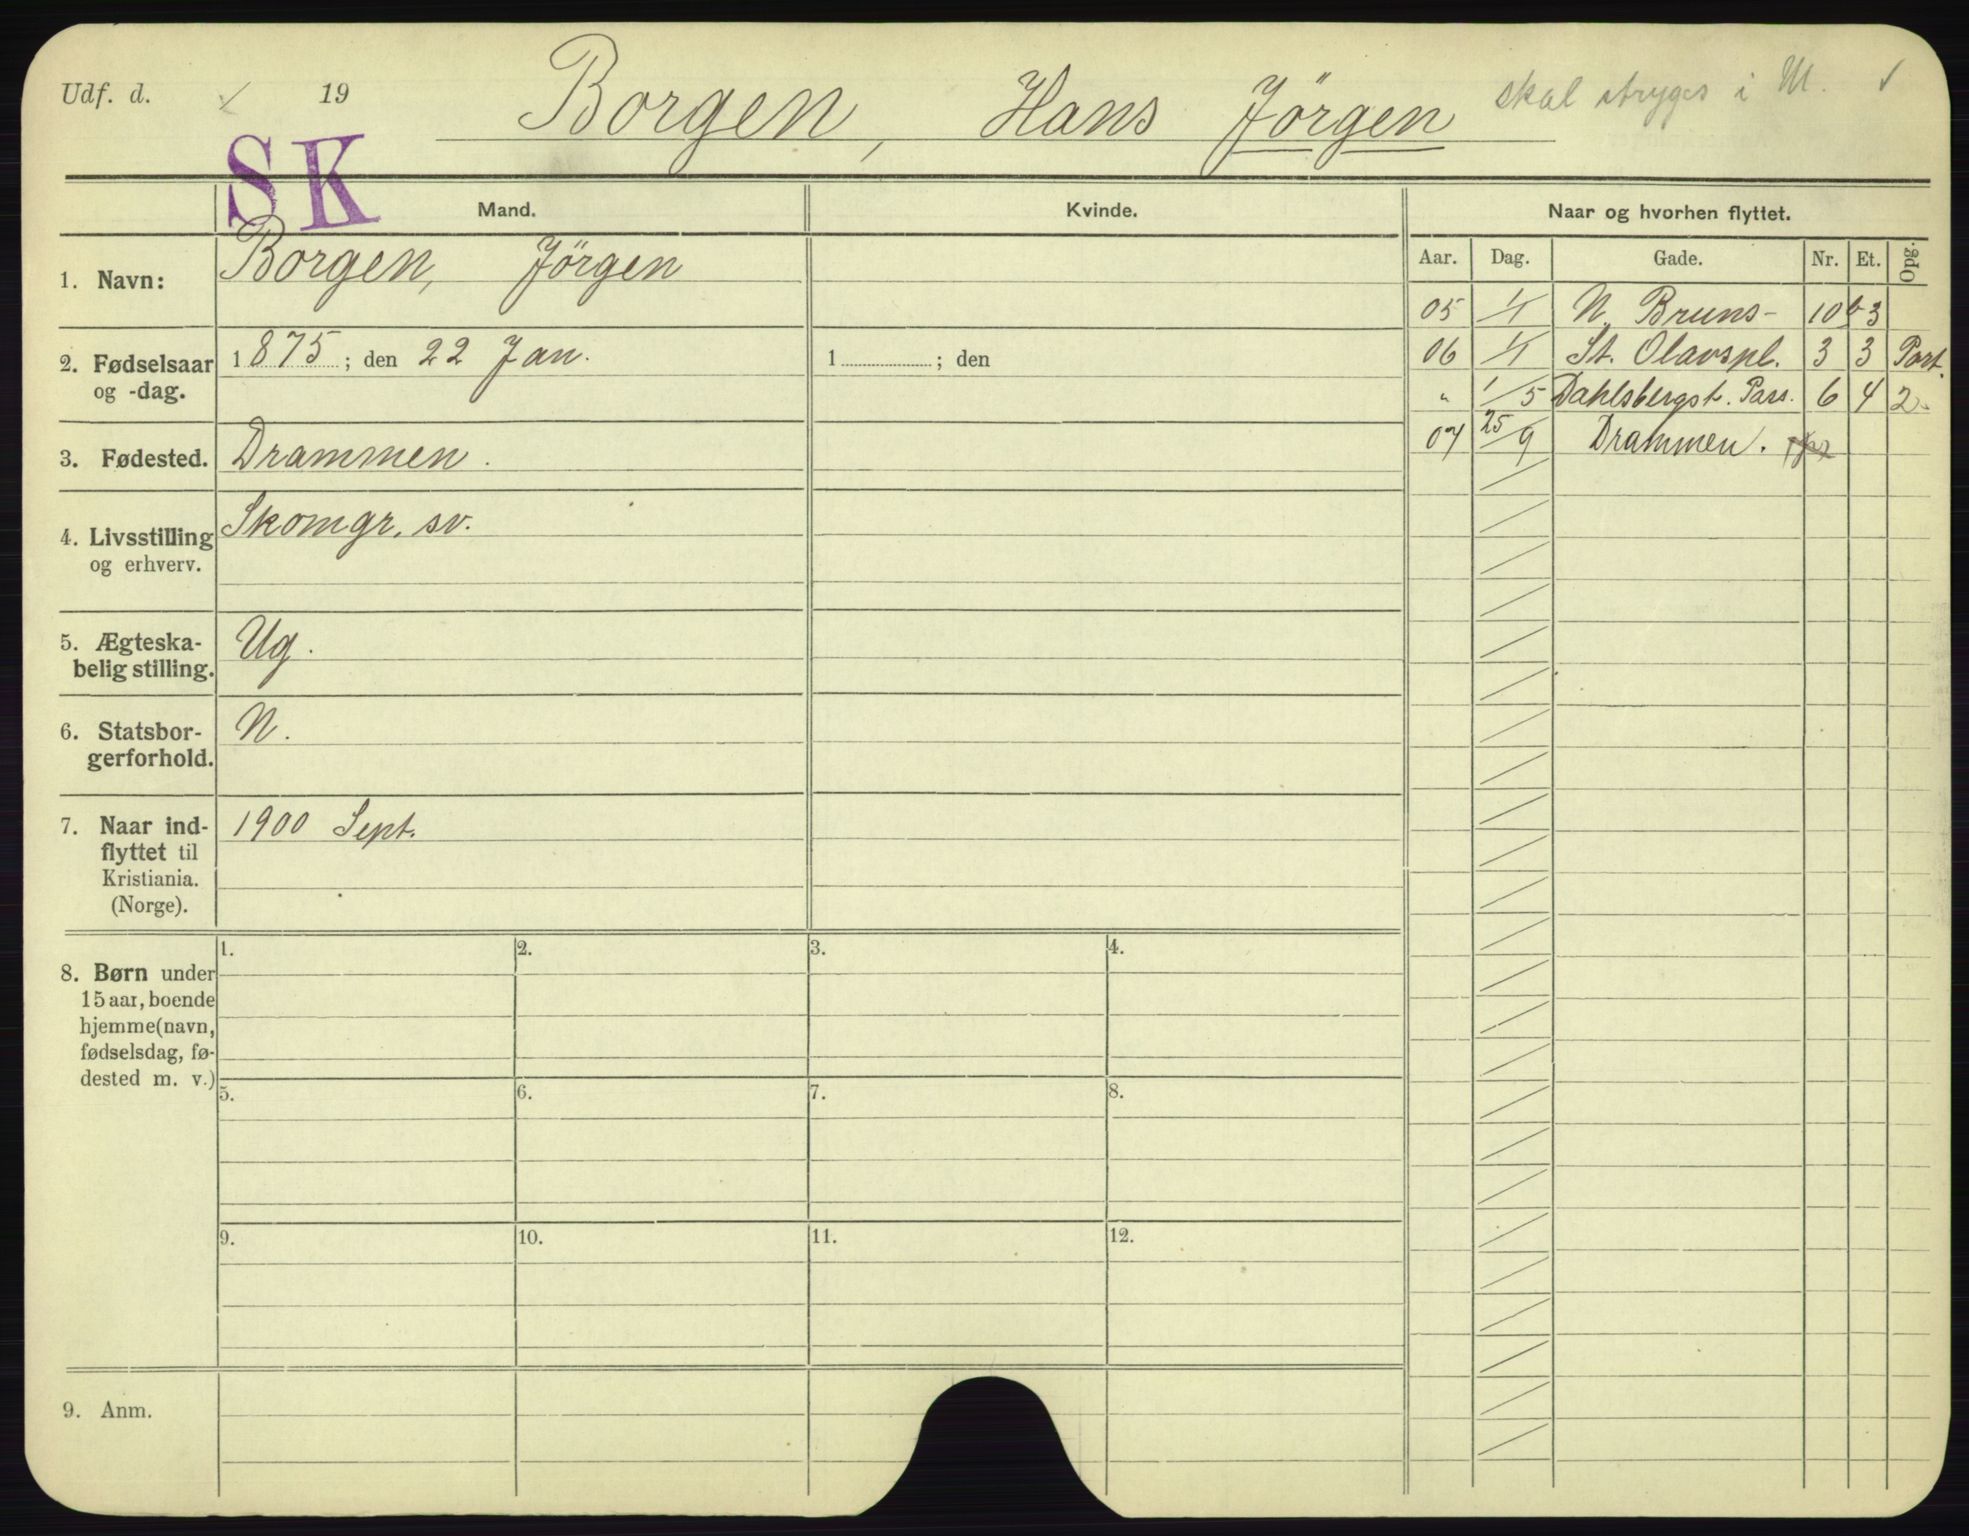 Udf. d. 19
Borgen, Hans Jörgen
skal stryges i M. ✓
SK
Mand.
Kvinde.
Naar og hvorhen flyttet.
Aar. Dag. Gade. Nr. Et. Opg.
1. Navn:
Borgen, Jörgen
2. Fødselsaar
og -dag.
1875; den 22 Jan.
1 ; den
3. Fødested.
Drammen.
4. Livsstilling
og erhverv.
Skomgr. sv.
5. Ægteska-
belig stilling.
Ug.
6. Statsbor-
gerforhold.
N.
7. Naar ind-
flyttet til
Kristiania.
(Norge).
1900 Sept.
8. Børn under
15 aar, boende
hjemme (navn,
fødselsdag, fø-
dested m. v.)
1. 2. 3. 4.
5. 6. 7. 8.
9. 10. 11. 12.
9. Anm.
05 1/4 N. Bruns- 10b 3
06 1/4 St. Olavspl. 3 3 Port.
" 1/5 Dahlsbergst. Pass. 6 4 2
07 25/9 Drammen.